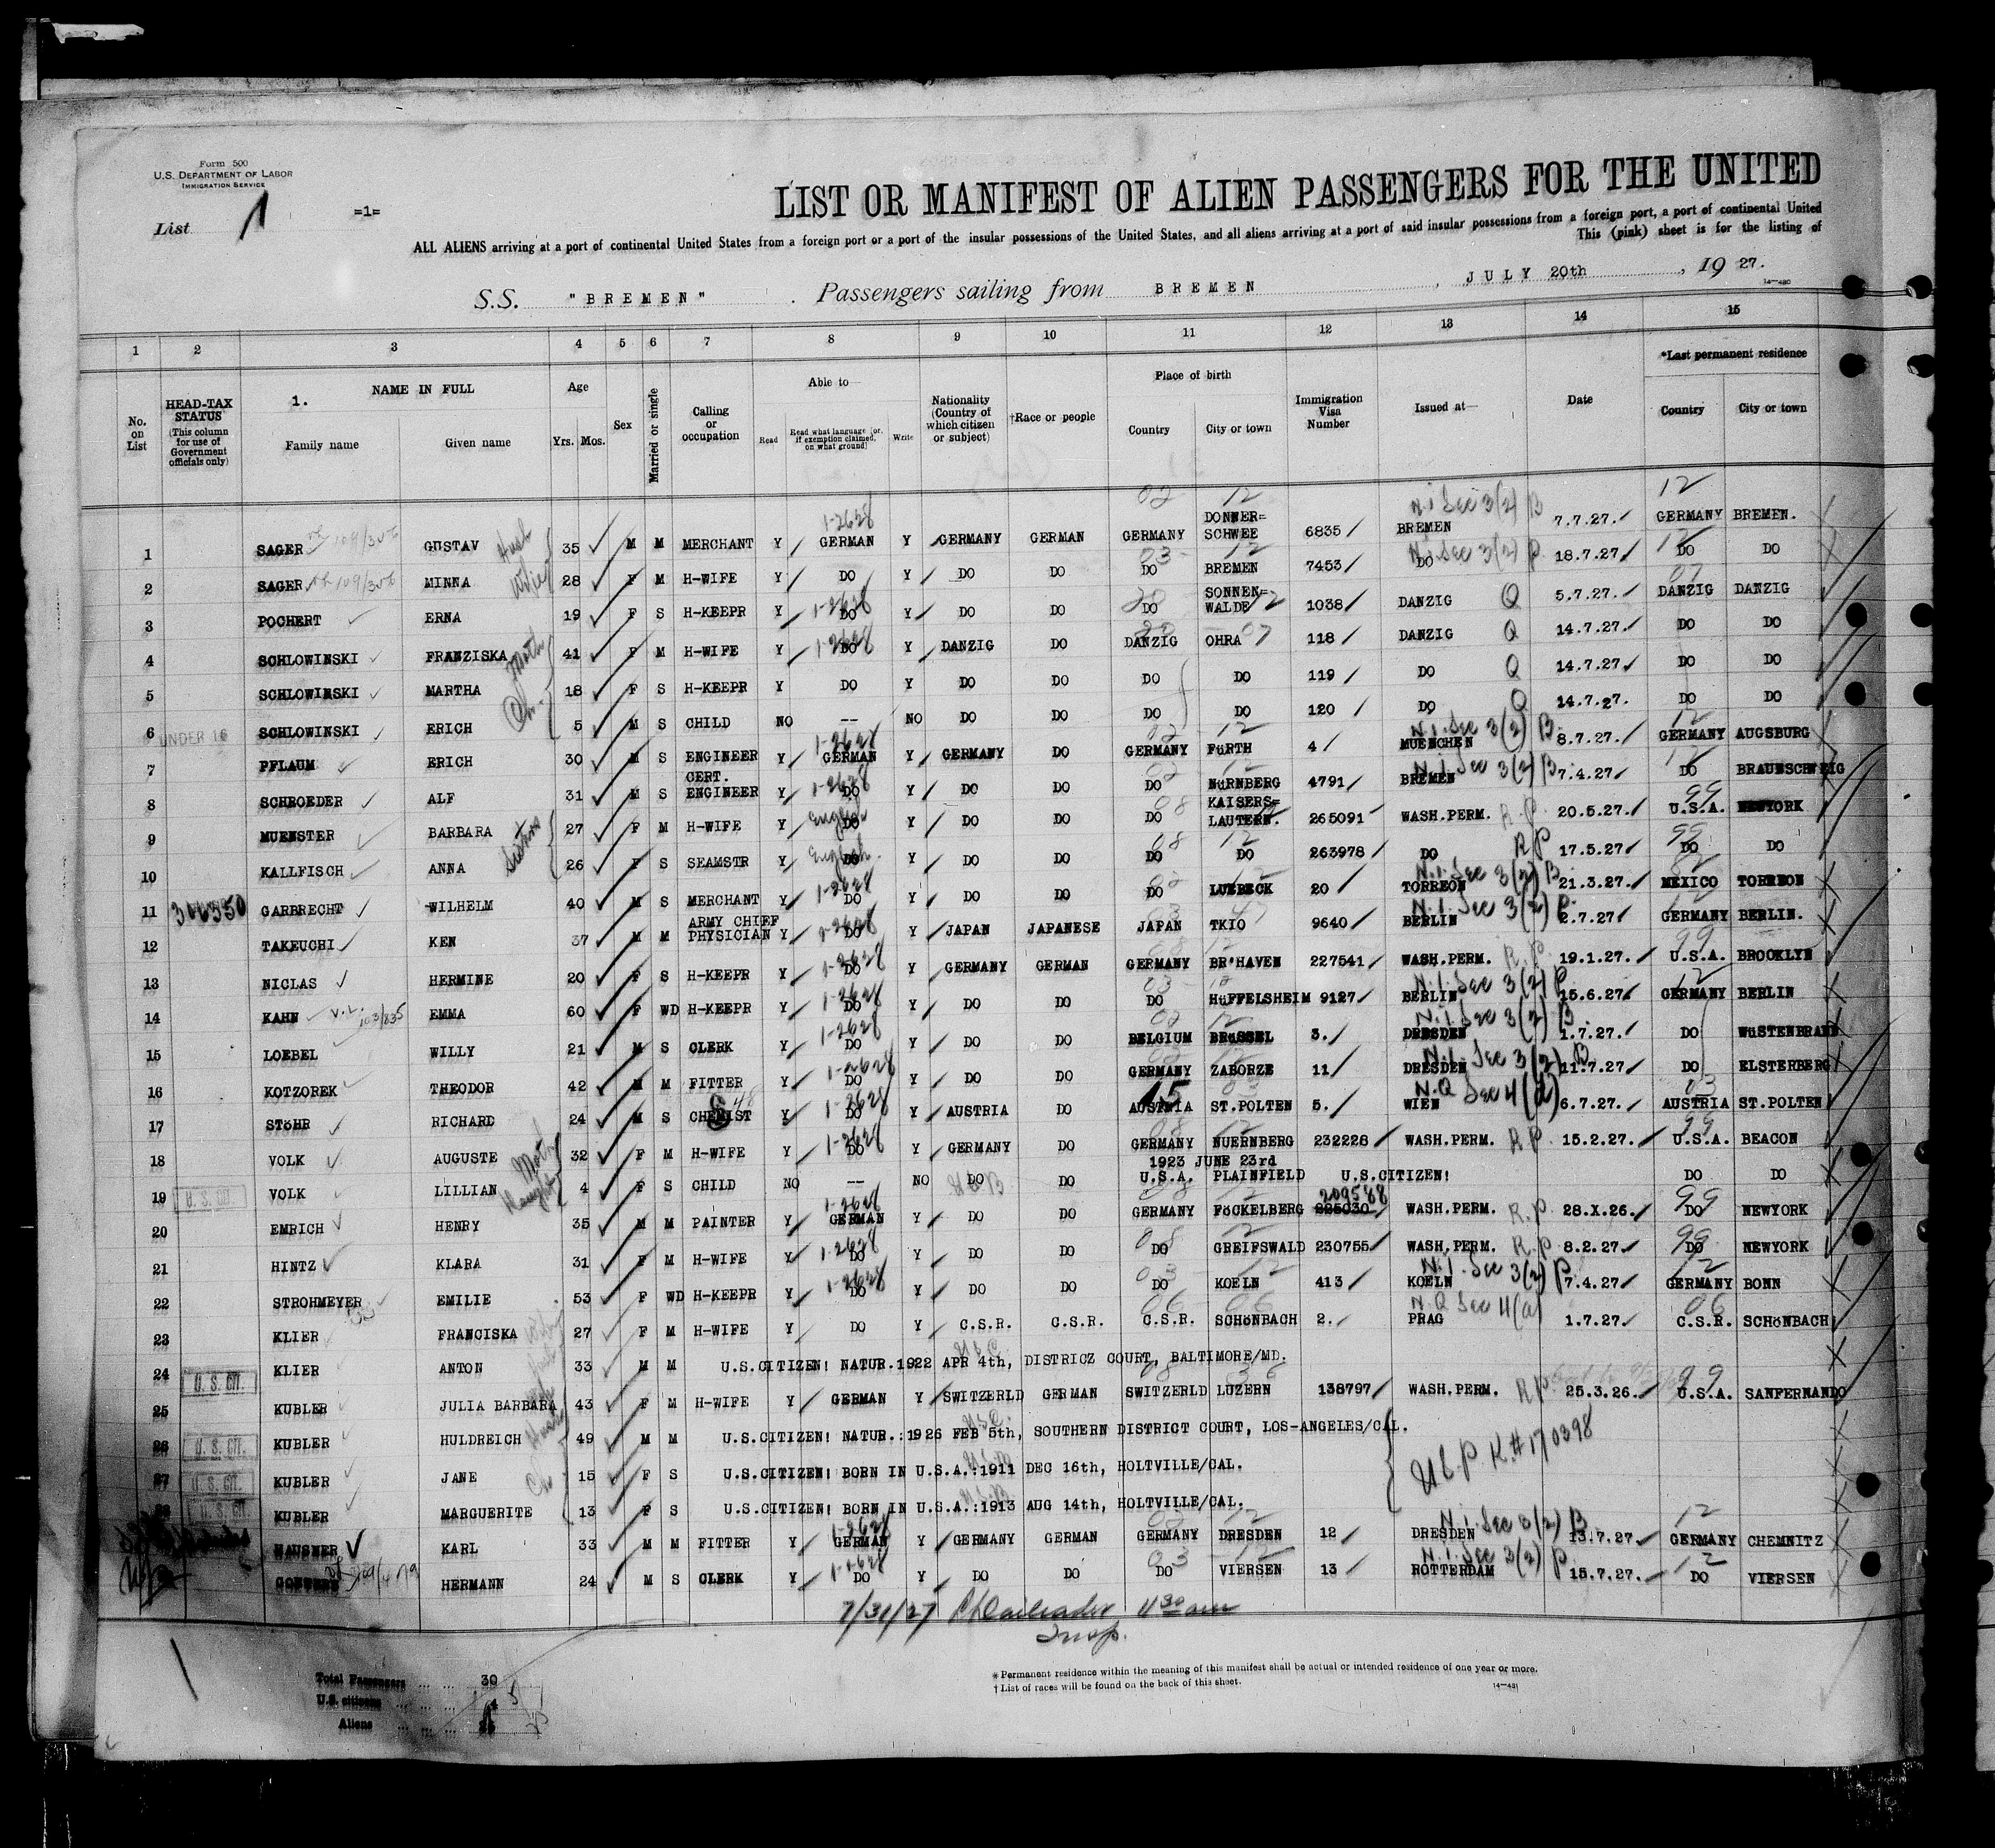 Form 500
U.S. DEPARTMENT OF LABOR
IMMIGRATION SERVICE
List 1
=1=
LIST OR MANIFEST OF ALIEN PASSENGERS FOR THE UNITED
ALL ALIENS arriving at a port of continental United States from a foreign port or a port of the insular possessions of the United States, and all aliens arriving at a port of said insular possessions from a foreign port, a port of continental United
This (pink) sheet is for the listing of
S.S. "BREMEN" . Passengers sailing from BREMEN , JULY 20th , 19 27.
14-480
1 2 3 4 5 6 7 8 9 10 11 12 13 14 15
No. on List
HEAD-TAX STATUS (This column for use of Government officials only)
1. NAME IN FULL
Family name Given name
Age
Yrs. Mos.
Sex
Married or single
Calling or occupation
Able to—
Read Read what language [or, if exemption claimed, on what ground] Write
Nationality (Country of which citizen or subject)
†Race or people
Place of birth
Country City or town
Immigration Visa Number
Issued at—
Date
*Last permanent residence
Country City or town
1 SAGER GUSTAV Husb 35 M M MERCHANT Y 1-2628 GERMAN Y GERMANY GERMAN 02 GERMANY 12 DONNER=SCHWEE 6835 N.I. Sec 3(2) B BREMEN 7.7.27. 12 GERMANY BREMEN.
2 SAGER MINNA Wife 28 F M H-WIFE Y DO Y DO DO 03 DO 12 BREMEN 7453 N.I. Sec 3(2) P. DO 18.7.27 12 DO DO
3 POCHERT ERNA 19 F S H-KEEPR Y 1-2628 DO Y DO DO DO SONNEN=WALDE 12 1038 DANZIG Q 5.7.27. 07 DANZIG DANZIG
4 SCHLOWINSKI FRANZISKA Moth 41 F M H-WIFE Y 1-2628 DO Y DANZIG DO DANZIG OHRA 07 118 DANZIG Q 14.7.27. DO DO
5 SCHLOWINSKI MARTHA Ch. 18 F S H-KEEPR Y DO Y DO DO DO DO 119 DO Q 14.7.27 DO DO
6 UNDER 16 SCHLOWINSKI ERICH 5 M S CHILD NO -- NO DO DO DO DO 120 DO Q 14.7.27. DO DO
7 PFLAUM ERICH 30 M S ENGINEER Y 1-2628 GERMAN Y GERMANY DO 02 GERMANY 12 FüRTH 4 N.I. Sec 3(2) B. MUENCHEN 8.7.27. 12 GERMANY AUGSBURG
8 SCHROEDER ALF 31 M S CERT. ENGINEER Y 1-2628 DO Y DO DO 02 DO 12 NüRNBERG 4791 N.I. Sec 3(2) B. BREMEN 7.4.27 12 DO BRAUNSCHWEIG
9 MUENSTER BARBARA Sisters 27 F M H-WIFE Y English DO Y DO DO 08 DO KAISERS=LAUTERN. 265091 WASH.PERM. R.P. 20.5.27. 99 U.S.A. NEWYORK
10 KALLFISCH ANNA 26 F S SEAMSTR Y English DO Y DO DO 08 DO 12 DO 263978 DO RP 17.5.27 99 DO DO
11 306350 GARBRECHT WILHELM 40 M S MERCHANT Y 1-2628 DO Y DO DO 02 DO 12 LUEBECK 20 N.I. Sec 3(2) B. TORREON 21.3.27. MEXICO TORREON
12 TAKEUCHI KEN 37 M M ARMY CHIEF PHYSICIAN Y 1-2628 DO Y JAPAN JAPANESE 03 JAPAN TKIO 9640 N.I. Sec 3(2) P. BERLIN 2.7.27 12 GERMANY BERLIN.
13 NICLAS HERMINE 20 F S H-KEEPR Y 1-2628 DO Y GERMANY GERMAN 08 GERMANY 12 BR'HAVEN 227541 WASH.PERM. R.P. 19.1.27. 99 U.S.A. BROOKLYN
14 KAHN V.L. 103/835 EMMA 60 F WD H-KEEPR Y 1-2628 DO Y DO DO 03 DO HüFFELSHEIM 9127 N.I. Sec 3(2) P BERLIN 15.6.27. 12 GERMANY BERLIN
15 LOEBEL WILLY 21 M S CLERK Y 1-2628 DO Y DO DO 02 BELGIUM 12 BRüSSEL 3. N.I. Sec 3(2) B. DRESDEN 1.7.27. DO WüSTENBRAND
16 KOTZOREK THEODOR 42 M M FITTER Y 1-2628 DO Y DO DO 02 GERMANY 12 ZABORZE 11 N.I. Sec 3(2) B. DRESDEN 11.7.27 DO ELSTERBERG
17 STöHR RICHARD 24 M S CHEMIST Y 1-2628 DO Y AUSTRIA DO 15 AUSTRIA 03 ST.POLTEN 5. N.Q Sec 4(d) WIEN 6.7.27. 03 AUSTRIA ST.POLTEN
18 VOLK AUGUSTE Moth 32 F M H-WIFE Y 1-2628 DO Y GERMANY DO 08 GERMANY NUERNBERG 232228 WASH.PERM. R P. 15.2.27. 99 U.S.A. BEACON
19 U.S. CIT. VOLK LILLIAN Daught 4 F S CHILD NO -- NO DO U.S.B DO 1923 JUNE 23rd U.S.A. PLAINFIELD U.S.CITIZEN! DO DO
20 EMRICH HENRY 35 M M PAINTER Y 1-2628 GERMAN Y DO DO 08 GERMANY 12 FöCKELBERG 209588 225030 WASH.PERM. R.P. 28.X.26. 99 DO NEWYORK
21 HINTZ KLARA 31 F M H-WIFE Y 1-2628 DO Y DO DO 08 DO 12 GREIFSWALD 230755 WASH.PERM. R.P 8.2.27. 99 DO NEWYORK
22 STROHMEYER EMILIE 53 F WD H-KEEPR Y 1-2628 DO Y DO DO 03 DO 12 KOELN 413 N.I. Sec 3(2) P KOELN 7.4.27 12 GERMANY BONN
23 KLIER FRANCISKA Wife 27 F M H-WIFE Y DO Y C.S.R. C.S.R. 06 C.S.R. 06 SCHöNBACH 2. N.Q Sec 4(a) PRAG 1.7.27. 06 C.S.R. SCHöNBACH
24 U.S. CIT. KLIER ANTON Husb 33 M M U.S.CITIZEN! NATUR.1922 APR 4th, DISTRICZ COURT, BALTIMORE/MD.
25 KUBLER JULIA BARBARA 43 F M H-WIFE Y GERMAN Y SWITZERLD GERMAN 08 SWITZERLD 36 LUZERN 138797 WASH.PERM. R P. 25.3.26. 99 U.S.A. SANFERNANDO
26 U.S. CIT. KUBLER HULDREICH Husb 49 M M U.S.CITIZEN! NATUR.:1926 FEB 5th, SOUTHERN DISTRICT COURT, LOS-ANGELES/CAL.
27 U.S. CIT. KUBLER JANE Ch 15 F S U.S.CITIZEN! BORN IN U.S.A.:1911 DEC 16th, HOLTVILLE/CAL.
28 U.S. CIT. KUBLER MARGUERITE 13 F S U.S.CITIZEN! BORN IN U.S.A.:1913 AUG 14th, HOLTVILLE/CAL.
# 170398
HAUSNER KARL 33 M M FITTER Y 1-2628 GERMAN Y GERMANY GERMAN 02 GERMANY 12 DRESDEN 12 N.I. Sec 3(2) B DRESDEN 13.7.27. 12 GERMANY CHEMNITZ
HERMANN 24 M S CLERK Y 1-2628 DO Y DO DO 03 DO 12 VIERSEN 13 N.I. Sec 3(2) P ROTTERDAM 15.7.27. 12 DO VIERSEN
7/31/27 11 30 am
Insp.
Total Passengers ... ... 30
U.S. citizens ... ... ... 4 5
Aliens ... ... ... 26 25
* Permanent residence within the meaning of this manifest shall be actual or intended residence of one year or more.
† List of races will be found on the back of this sheet.
14-481